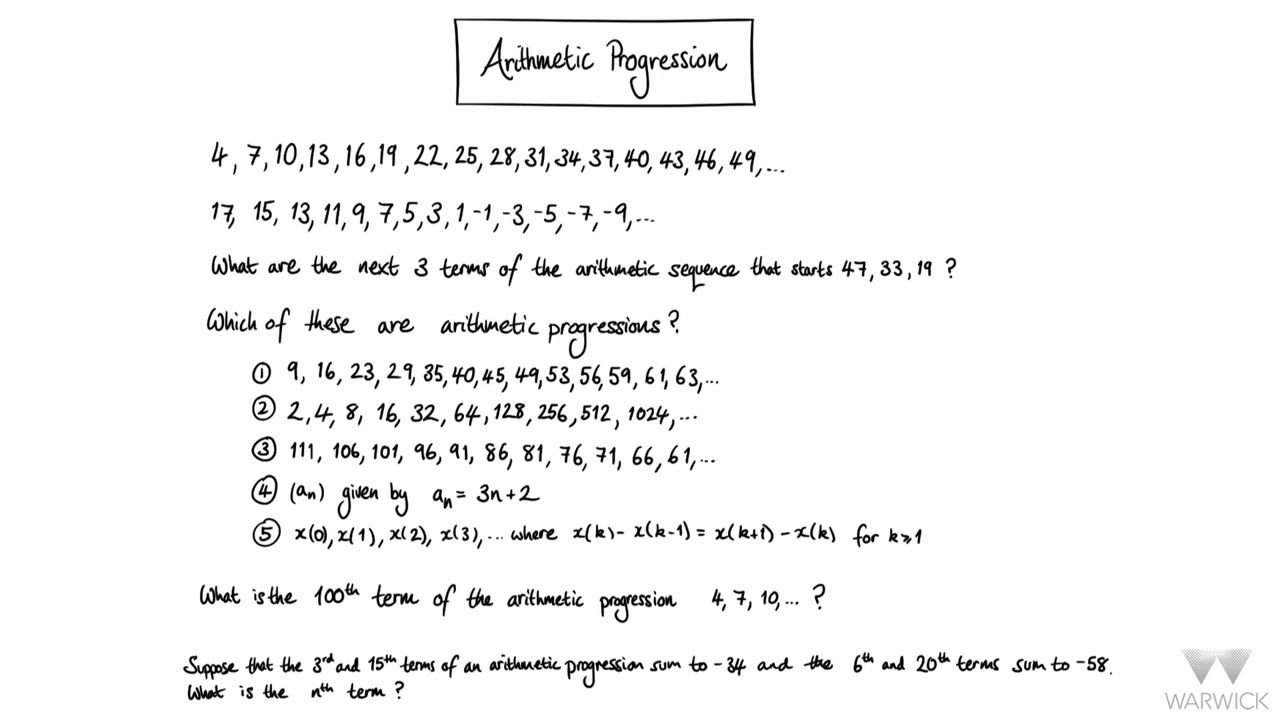 Arithmetic Progression
4, 7, 10, 13, 16, 19, 22, 25, 28, 31, 34, 37, 40, 43, 46, 49, ...
17, 15, 13, 11, 9, 7, 5, 3, 1, -1, -3, -5, -7, -9, ...
What are the next 3 terms of the arithmetic sequence that starts 47, 33, 19 ?
Which of these are arithmetic progressions?
① 9, 16, 23, 29, 35, 40, 45, 49, 53, 56, 59, 61, 63, ...
② 2, 4, 8, 16, 32, 64, 128, 256, 512, 1024, ...
③ 111, 106, 101, 96, 91, 86, 81, 76, 71, 66, 61, ...
④ (aₙ) given by aₙ = 3n+2
⑤ x(0), x(1), x(2), x(3), ... where x(k) - x(k-1) = x(k+1) - x(k) for k≥1
What is the 100th term of the arithmetic progression 4, 7, 10, ... ?
Suppose that the 3rd and 15th terms of an arithmetic progression sum to -34 and the 6th and 20th terms sum to -58.
What is the nth term ?
WARWICK